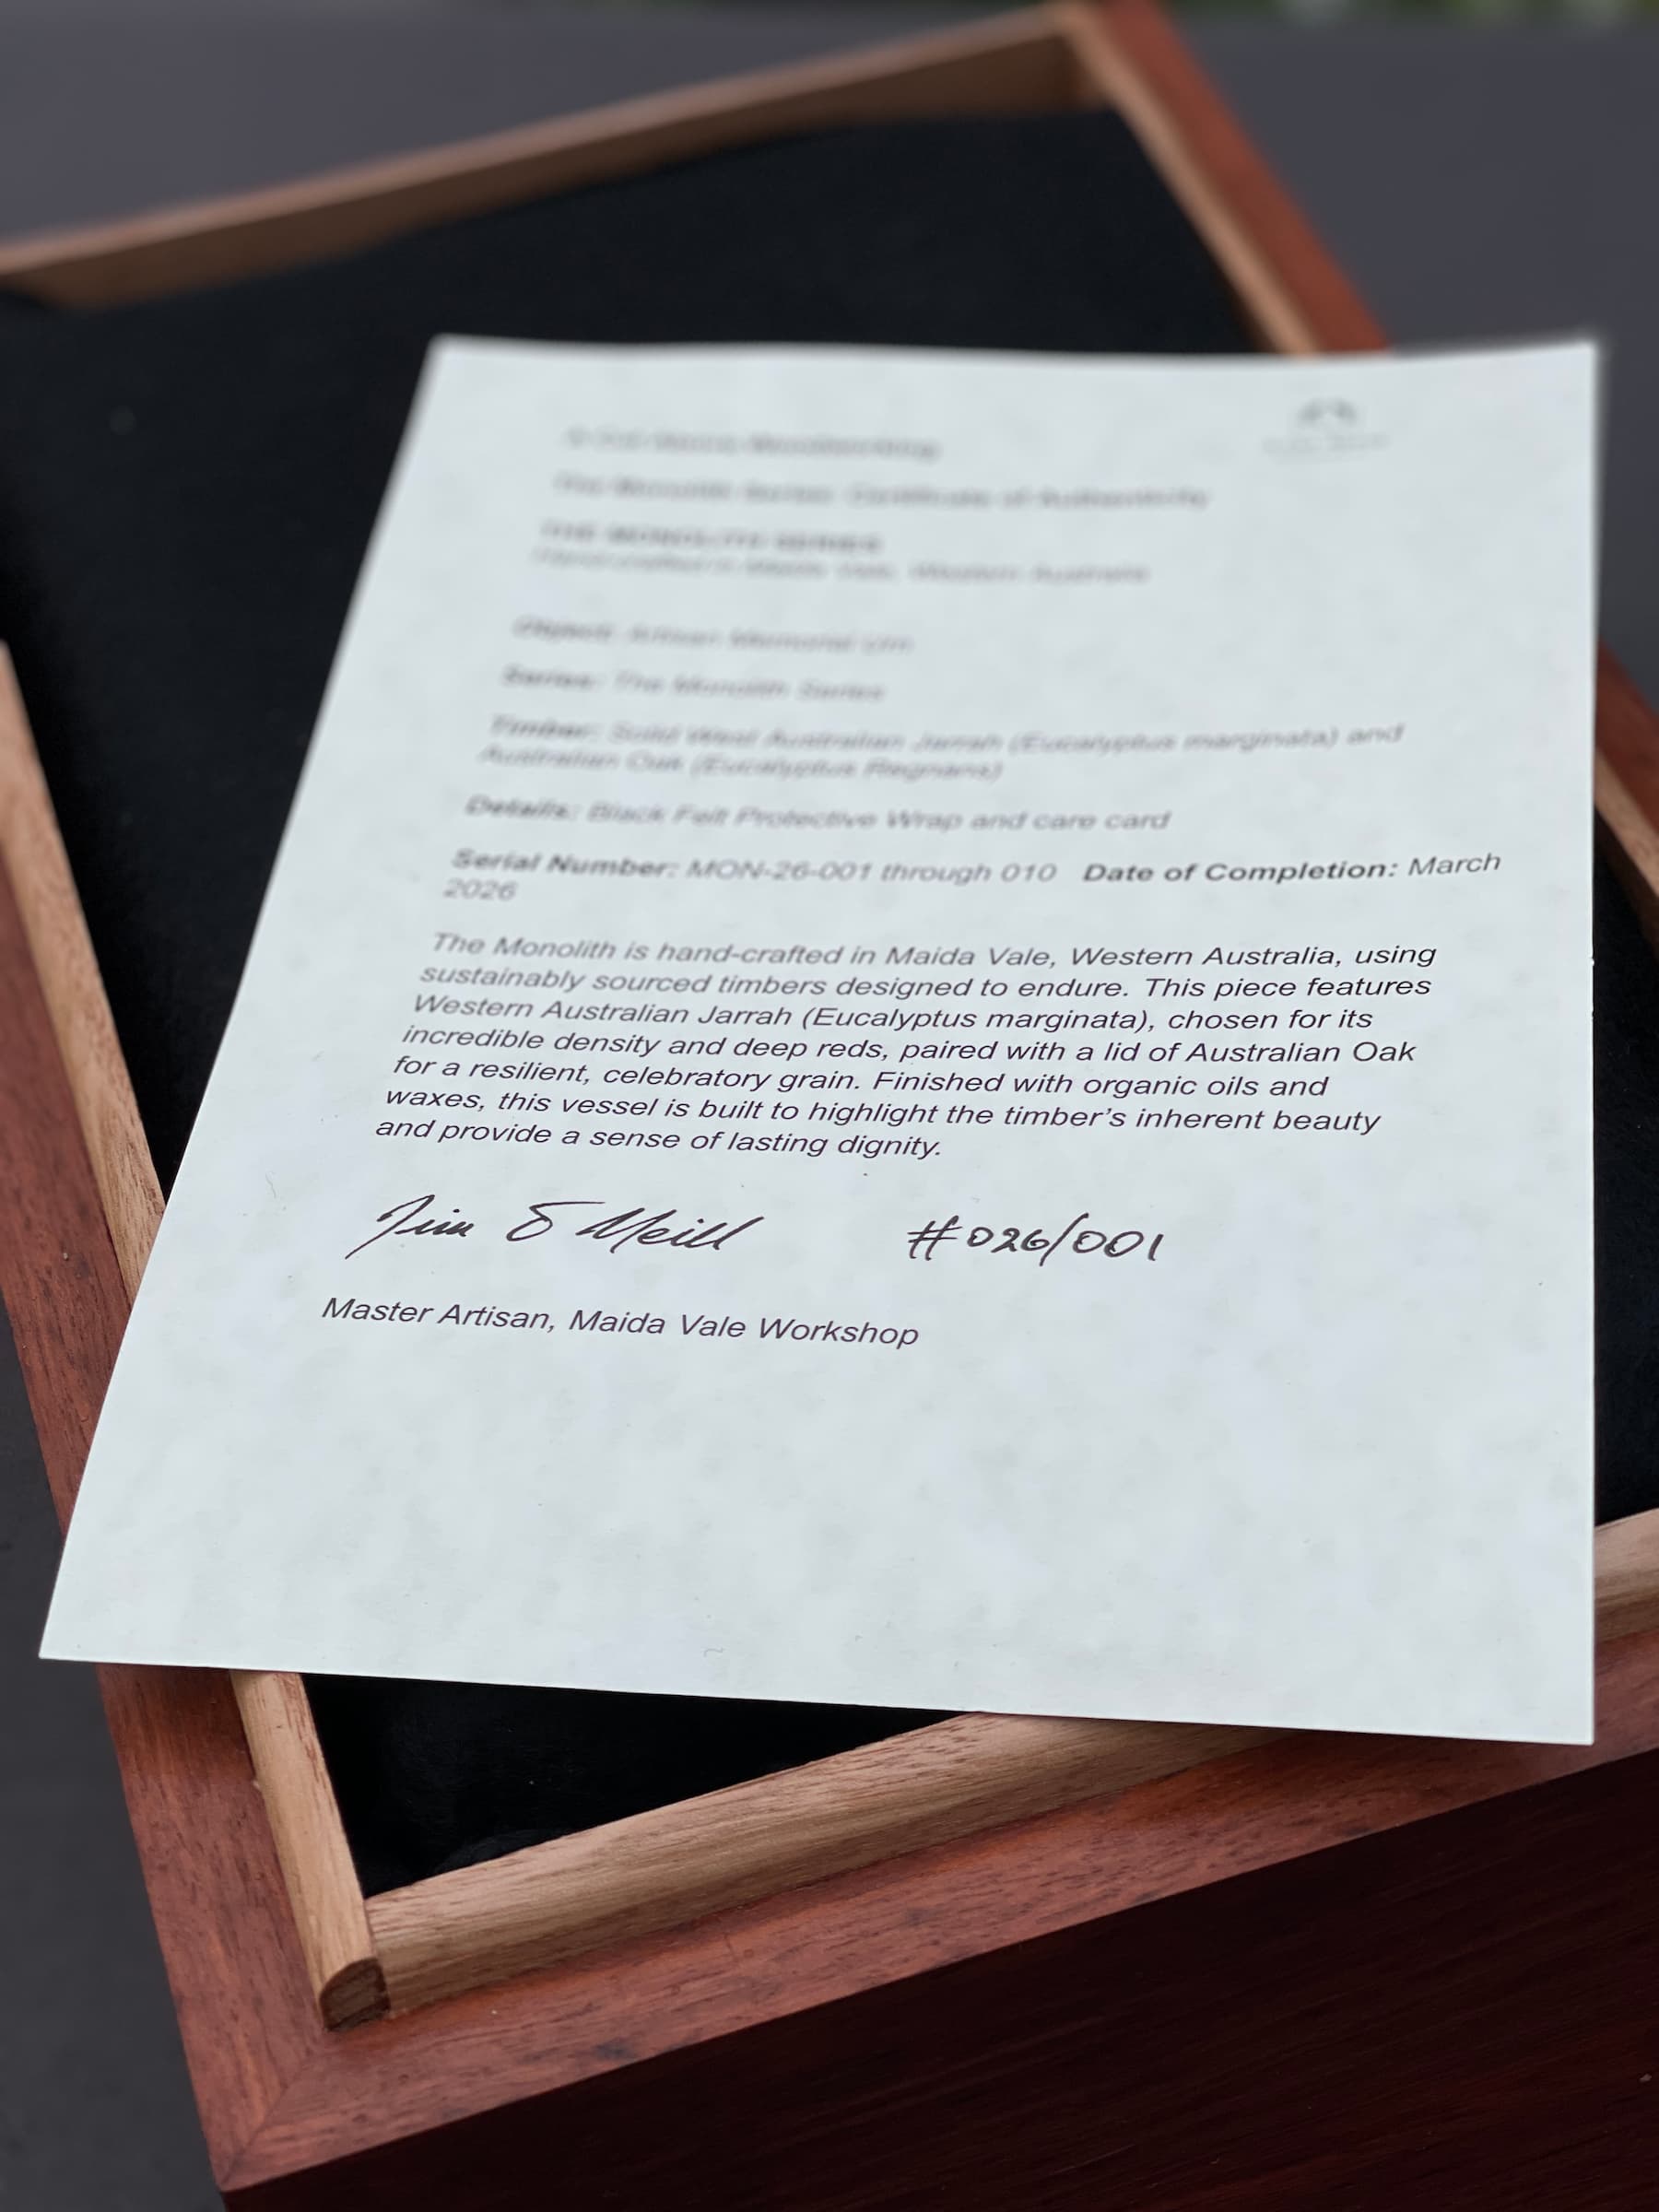 The Monolith Series: Certificate of Authenticity
THE MONOLITH SERIES
Handcrafted in Maida Vale, Western Australia
Object: Artisan Memorial Urn
Series: The Monolith Series
Timber: Solid West Australian Jarrah (Eucalyptus marginata) and
Australian Oak (Eucalyptus Regnans)
Details: Black Felt Protective Wrap and care card
Serial Number: MON-26-001 through 010 Date of Completion: March
2026
The Monolith is hand-crafted in Maida Vale, Western Australia, using
sustainably sourced timbers designed to endure. This piece features
Western Australian Jarrah (Eucalyptus marginata), chosen for its
incredible density and deep reds, paired with a lid of Australian Oak
for a resilient, celebratory grain. Finished with organic oils and
waxes, this vessel is built to highlight the timber’s inherent beauty
and provide a sense of lasting dignity.
Jim O'Neill #026/001
Master Artisan, Maida Vale Workshop